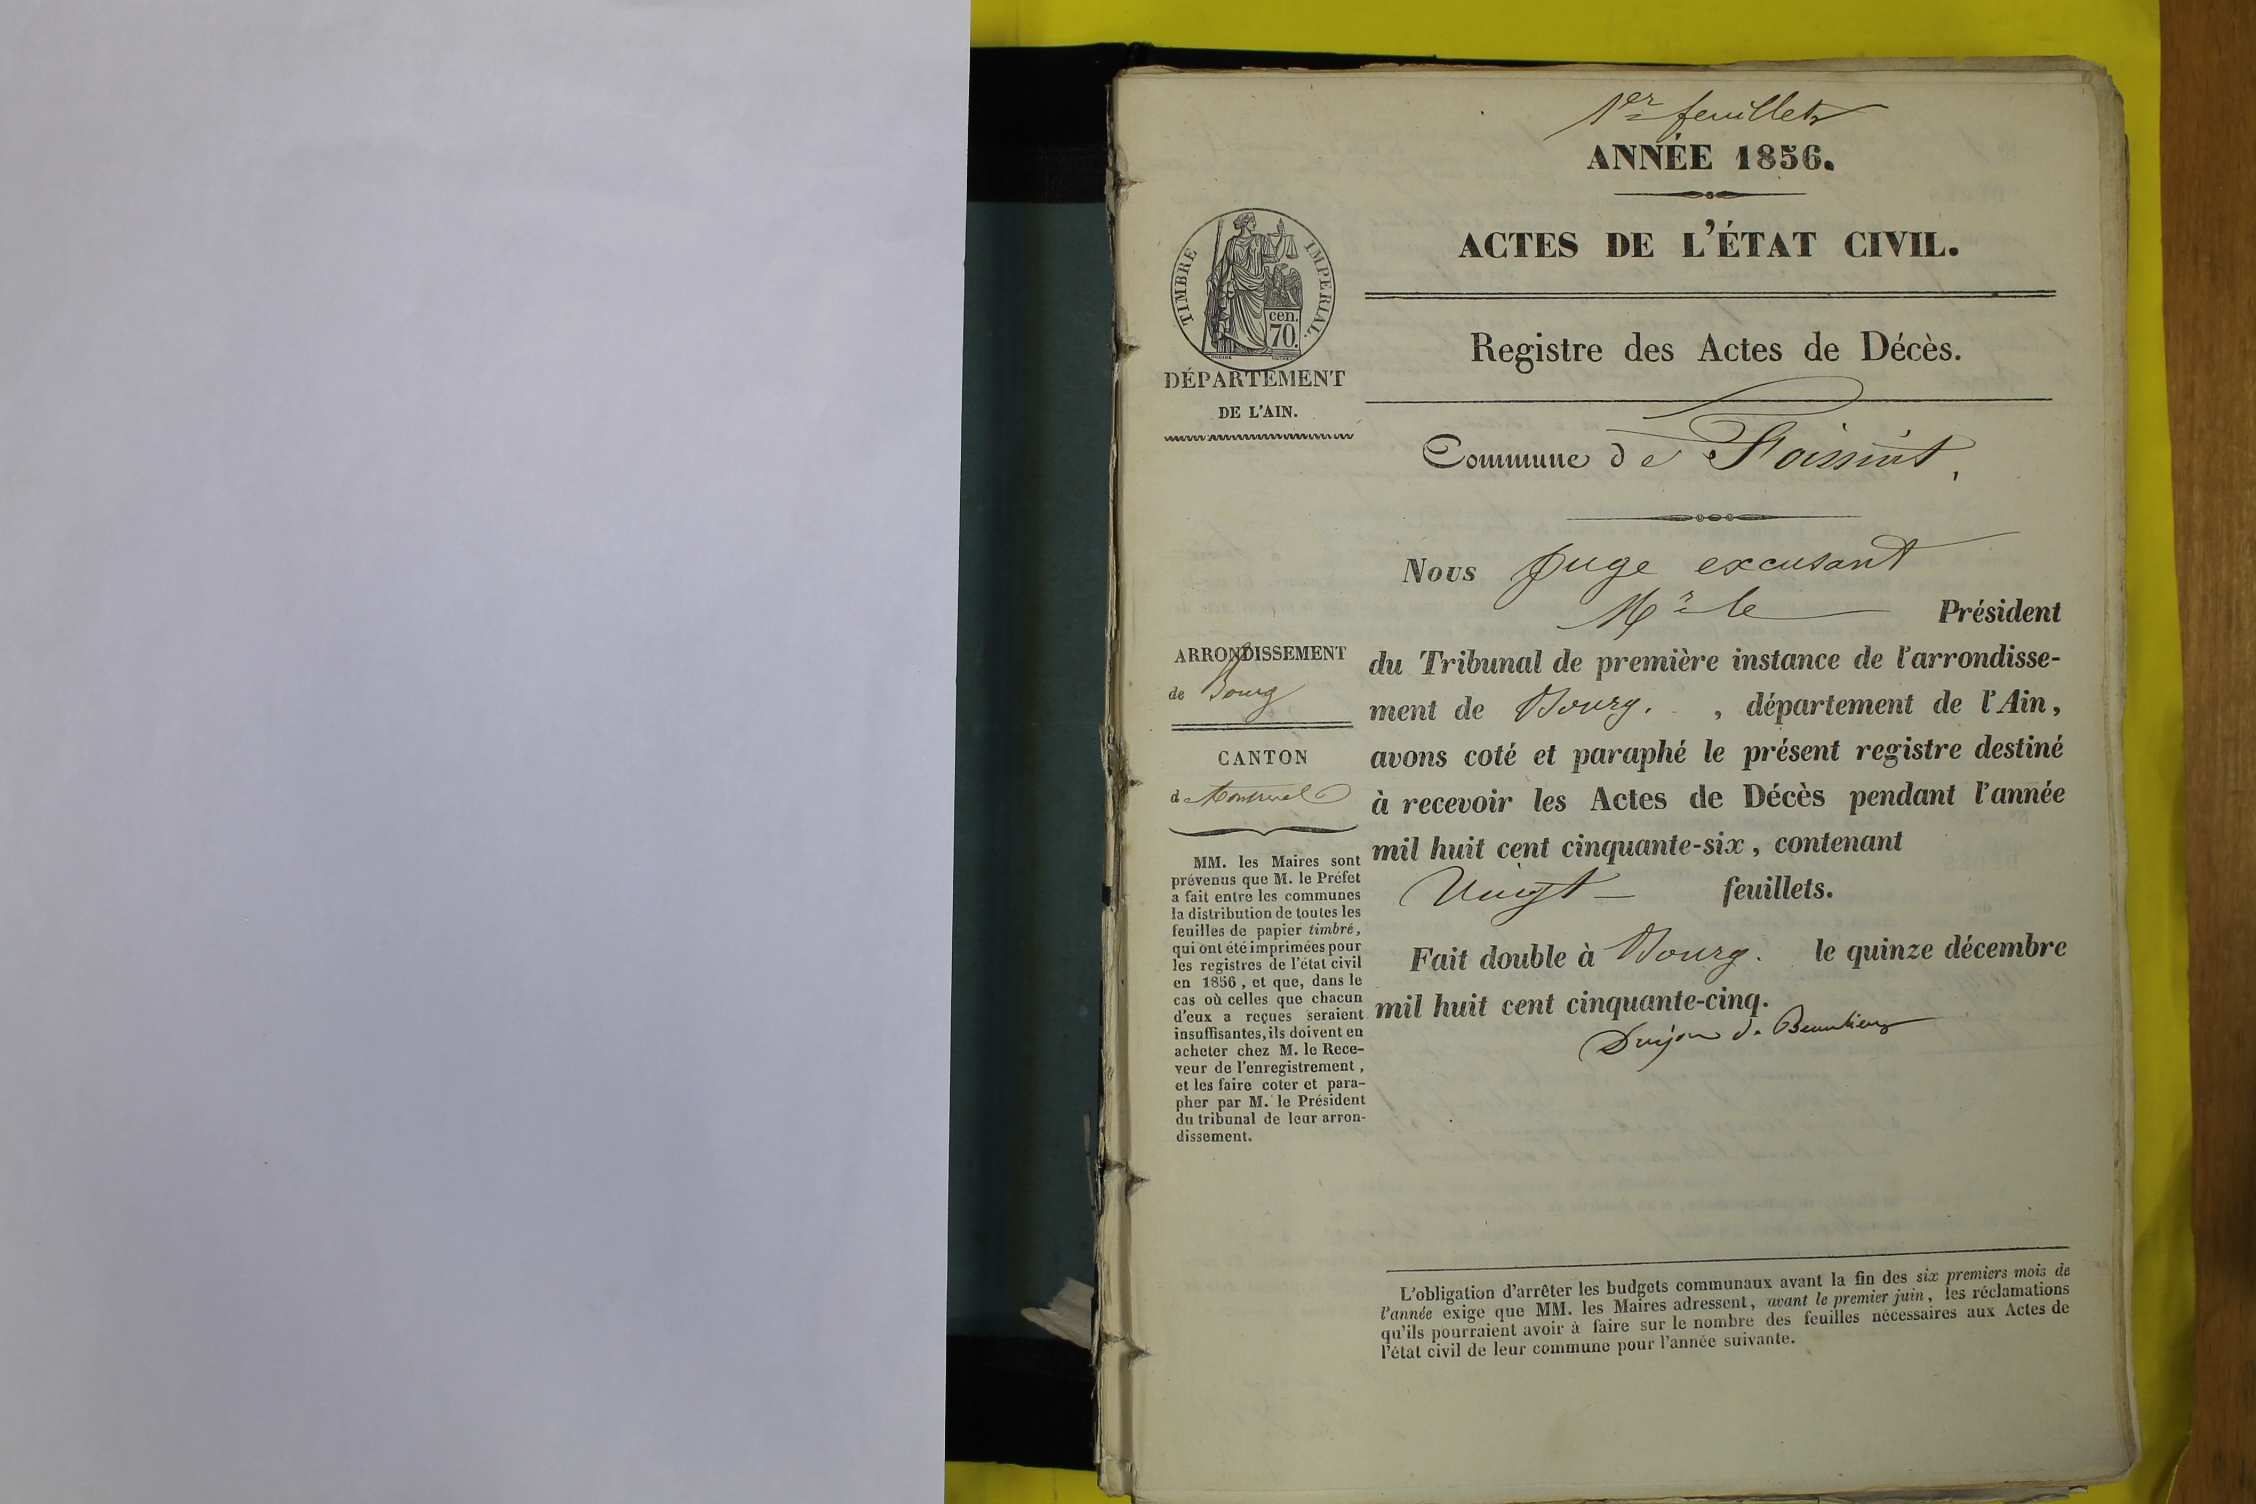 1er feuillet
ANNÉE 1856.
ACTES DE L'ÉTAT CIVIL.
TIMBRE IMPERIAL.
cen.
70.
Registre des Actes de Décès.
DÉPARTEMENT
DE L'AIN.
Commune de Foissiat,
Nous Juge excusant
Mr le Président
du Tribunal de première instance de l'arrondisse-
ment de Bourg. , département de l'Ain,
avons coté et paraphé le présent registre destiné
à recevoir les Actes de Décès pendant l'année
mil huit cent cinquante-six, contenant
Vingt feuillets.
Fait double à Bourg. le quinze décembre
mil huit cent cinquante-cinq.
de
ARRONDISSEMENT
de Bourg
CANTON
de Montrevel
MM. les Maires sont
prévenus que M. le Préfet
a fait entre les communes
la distribution de toutes les
feuilles de papier timbré,
qui ont été imprimées pour
les registres de l'état civil
en 1856, et que, dans le
cas où celles que chacun
d'eux a reçues seraient
insuffisantes, ils doivent en
acheter chez M. le Rece-
veur de l'enregistrement,
et les faire coter et para-
pher par M. le Président
du tribunal de leur arron-
dissement.
L'obligation d'arrêter les budgets communaux avant la fin des six premiers mois de
l'année exige que MM. les Maires adressent, avant le premier juin, les réclamations
qu'ils pourraient avoir à faire sur le nombre des feuilles nécessaires aux Actes de
l'état civil de leur commune pour l'année suivante.